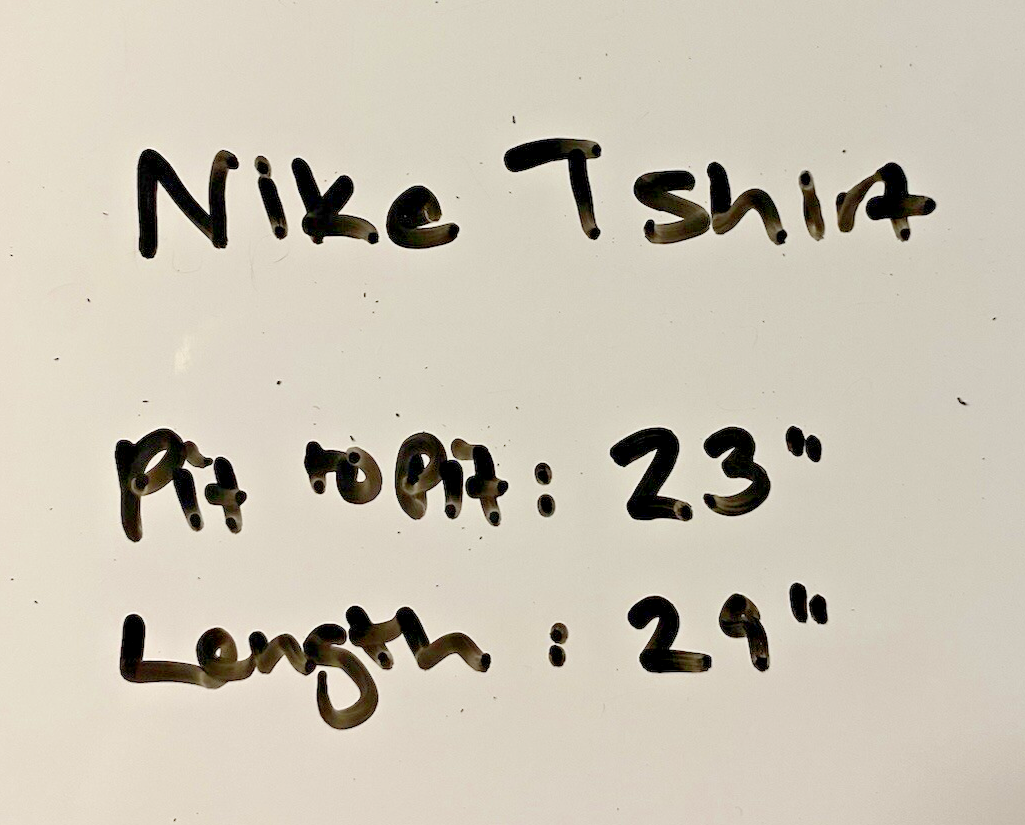 Nike Tshirt
Pit to Pit: 23"
Length : 29"